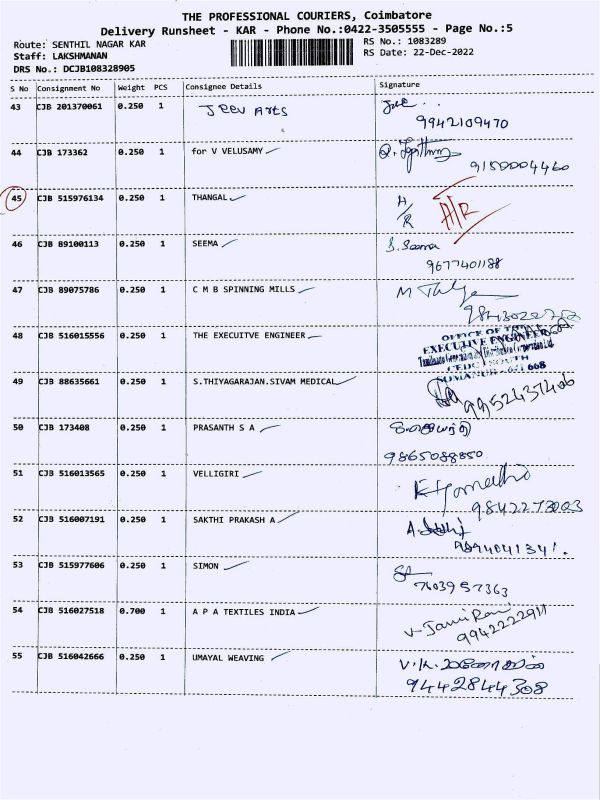 THE PROFESSIONAL COURIERS, Coimbatore
Delivery Runsheet - KAR - Phone No.:0422-3505555 - Page No.:5
Route: SENTHIL NAGAR KAR RS No.: 1083289
Staff: LAKSHMANAN RS Date: 22-Dec-2022
DRS No.: DCJB108328905
S No Consignment No Weight PCS Consignee Details Signature
43 CJB 201370061 0.250 1 Jeev Arts
9942109470
44 CJB 173362 0.250 1 for V VELUSAMY
9150004460
45 CJB 515976134 0.250 1 THANGAL A/R A/R
46 CJB 89100113 0.250 1 SEEMA S. Seema
9677401188
47 CJB 89075786 0.250 1 C M B SPINNING MILLS
48 CJB 516015556 0.250 1 THE EXECUITVE ENGINEER OFFICE OF THE
EXECUTIVE ENGINEER
SOUTH
SOMANUR - 641 668
49 CJB 88635661 0.250 1 S.THIYAGARAJAN.SIVAM MEDICAL
9952437406
50 CJB 173408 0.250 1 PRASANTH S A
9865088850
51 CJB 516013565 0.250 1 VELLIGIRI
9842273003
52 CJB 516007191 0.250 1 SAKTHI PRAKASH A
53 CJB 515977606 0.250 1 SIMON
7603957363
54 CJB 516027518 0.700 1 A P A TEXTILES INDIA V-Jansi Rani
9942222911
55 CJB 516042666 0.250 1 UMAYAL WEAVING
9442844308